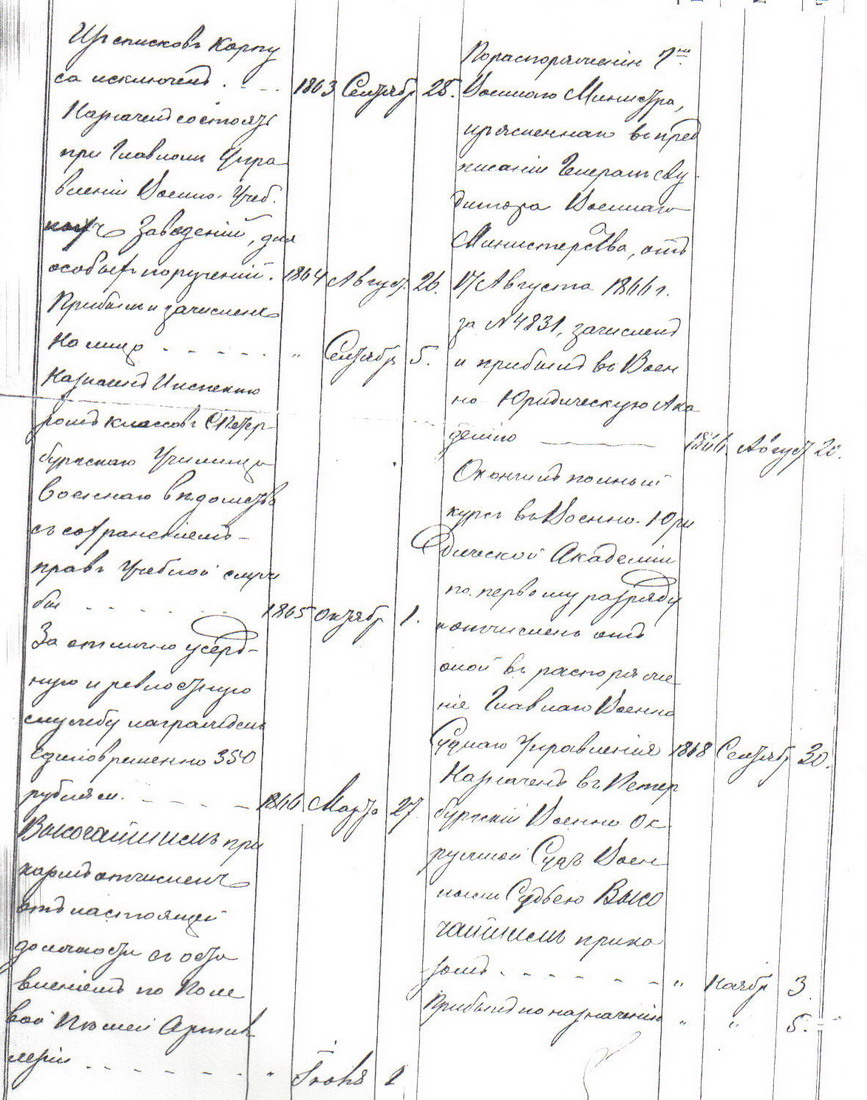 Изъ списковъ Корпу
са исключенъ . . . 1863 Сентябр 28.
Назначенъ состоять
при Главномъ Упра
вленіи Военно-Учеб
ныхъ Заведеній, для
особыхъ порученій. 1864 Август. 26.
Прибылъ и зачисленъ
на лицо - - - - - „ Сентябр 5.
Назначенъ Инспекто
ромъ классовъ СПетер
бургскаго Училища
Военнаго вѣдомства
съ сохраненіемъ
правъ Учебной служ
бы - - - - - 1865 Октябр 1.
За отлично усерд-
ную и ревностную
службу награжденъ
Единовременно 350
рублями. - - - - 1866 Марта 27.
Высочайшимъ при
казомъ отчисленъ
отъ настоящей
должности съ оста
вленіемъ по Поле
вой Пѣшей Артил
леріи - - - - - „ Іюня
По распоряженію Г.на
Военнаго Министра,
изъясненнаго въ пред
писаніи Генералъ-Ау-
дитора Военнаго
Министерства, отъ
17 Августа 1866 г.
за № 4831, зачисленъ
и прибылъ въ Воен
но Юридическую Ака
демію 1866 Август
Окончилъ полный
курсъ въ Военно-Юри
дической Академіи
по первому разряду
и отчисленъ отъ
оной въ распоряже
ніе Главнаго Военно
Суднаго Управленія 1868 Сентябр 30.
Назначенъ въ Петер
бургскій Военно Ок
ружной Судъ Воен
нымъ Судьею Высо
чайшимъ прика
зомъ - - - - - „ Ноябр 3.
Прибылъ по назначенію „ „ 5.